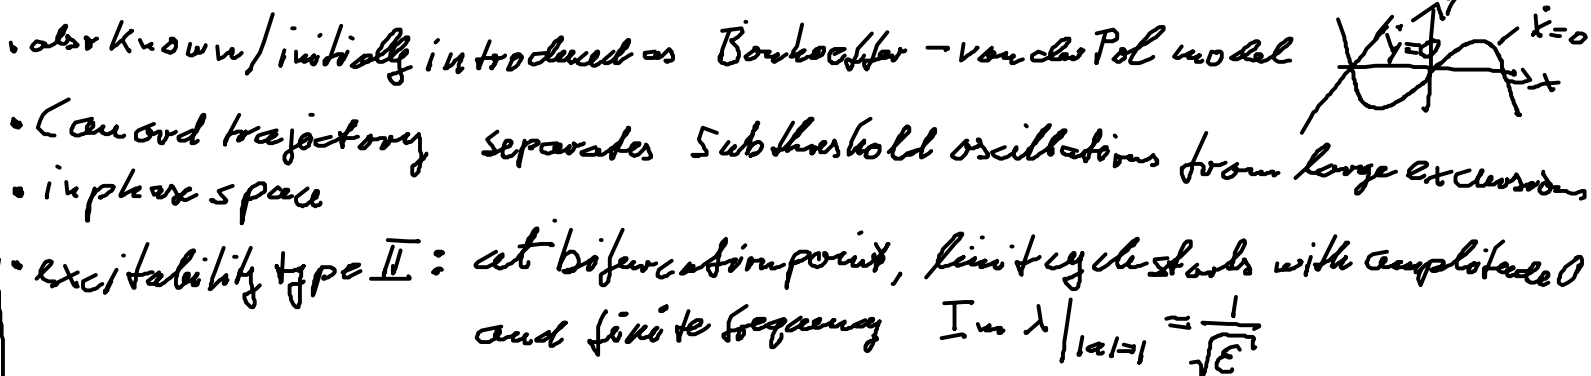 • also known/initially introduced as Bonhoeffer – van der Pol model
y
ẋ=0
ẏ=0
x
• Canard trajectory separates subthreshold oscillations from large excursions
• in phase space
• excitability type II: at bifurcation point, limit cycle starts with amplitude 0
and finite frequency Im λ|_{|a|=1} = 1/√ε